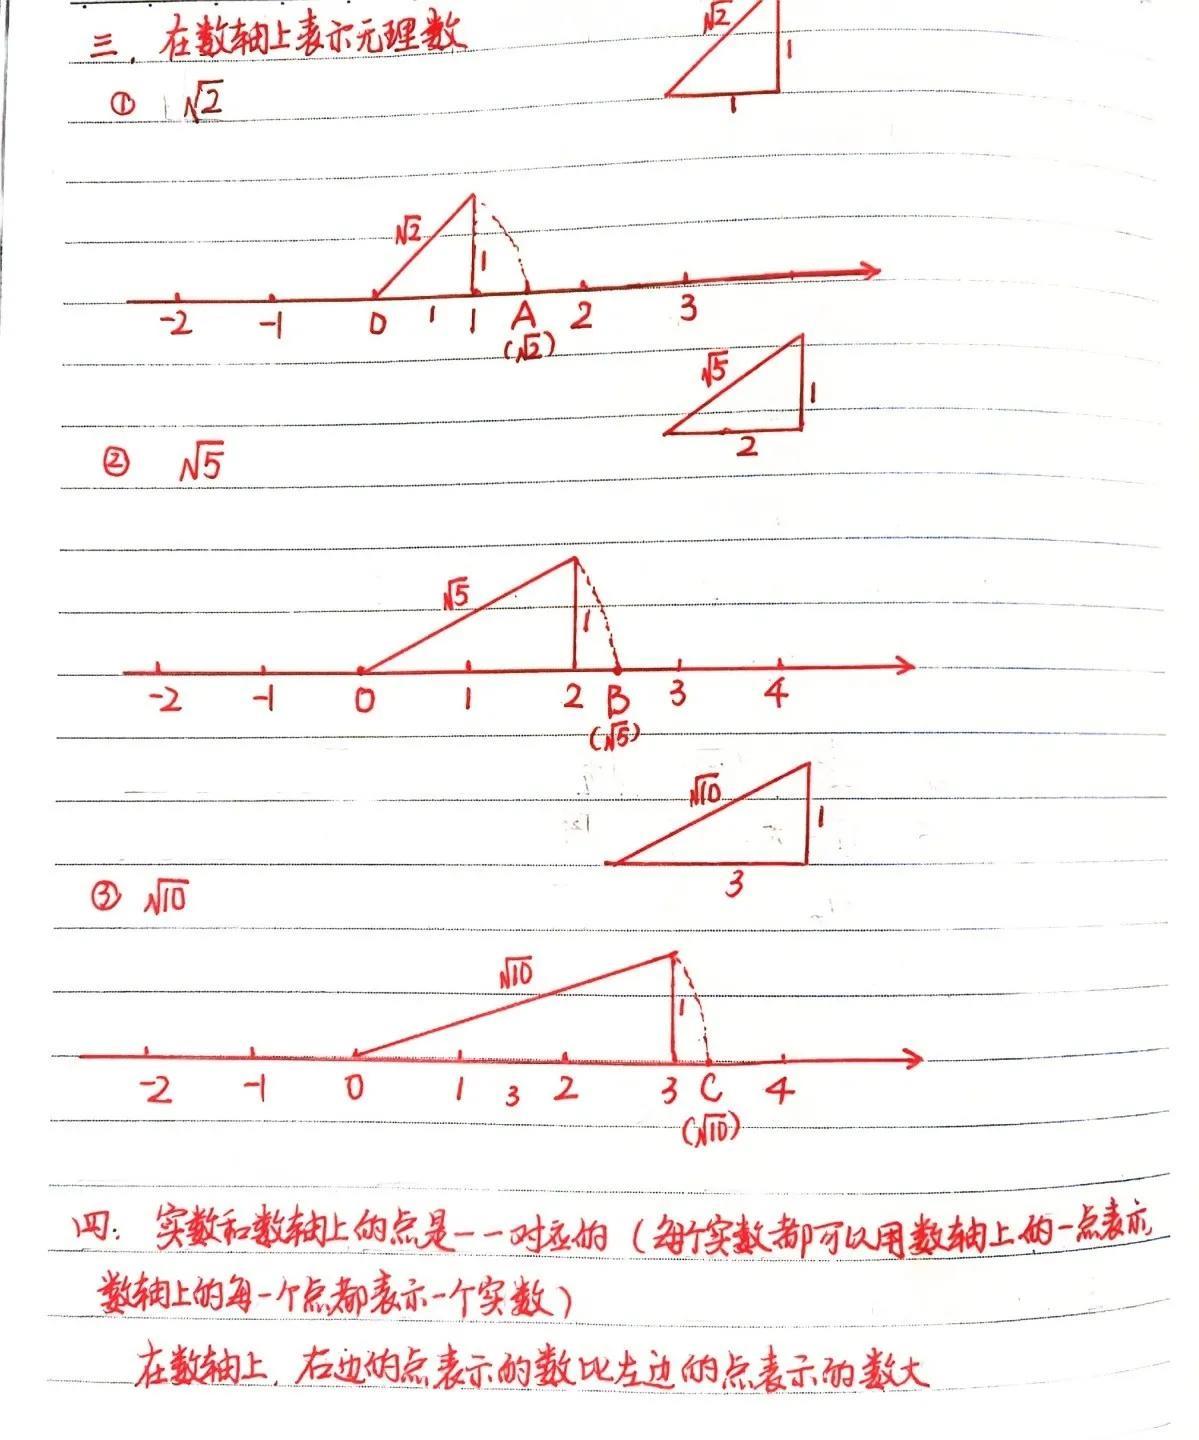 三. 在数轴上表示无理数
√2
1
1
① √2
√2
1
-2 -1 0 1 1 A 2 3
(√2)
√5
1
2
② √5
√5
1
-2 -1 0 1 2 B 3 4
(√5)
√10
1
3
③ √10
√10
1
-2 -1 0 1 3 2 3 C 4
(√10)
四: 实数和数轴上的点是一一对应的 (每个实数都可以用数轴上的一点表示
数轴上的每一个点都表示一个实数)
在数轴上, 右边的点表示的数比左边的点表示的数大